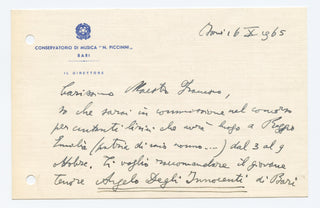 Bari 16 IX 1965
CONSERVATORIO DI MUSICA "N. PICCINNI"
BARI
IL DIRETTORE
Carissimo Maestro
so che sarai in commissione nel concorso
per cantanti lirici che avrà luogo a Reggio
Emilia (patria di mio nonno...) dal 3 al 9
ottobre. Ti voglio raccomandare il giovane
tenore Angelo Degli Innocenti di Bari